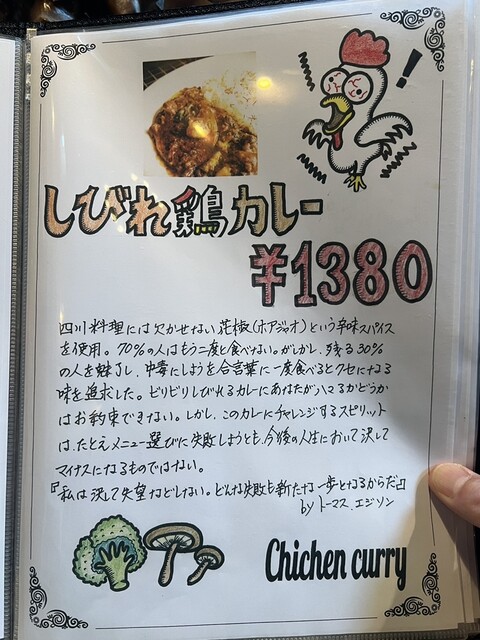 しびれ鶏カレー
¥1380
四川料理には欠かせない花椒(ホアジャオ)という辛味スパイス
を使用。70%の人はもう二度と食べない。がしかし、残る30%
の人を魅了し、中毒にしようを合言葉に一度食べるとクセになる
味を追求した。ビリビリしびれるカレにあなたがハマるかどうか
はお約束できない。しかし、このカレにチャレンジするスピリット
は、たとえメニュー選びに失敗しようとも、今後の人生において決して
マイナスになるものではない。
『私は決して失望などしない。どんな失敗も新たな一歩となるからだ』
by トーマス.エジソン
Chichen curry